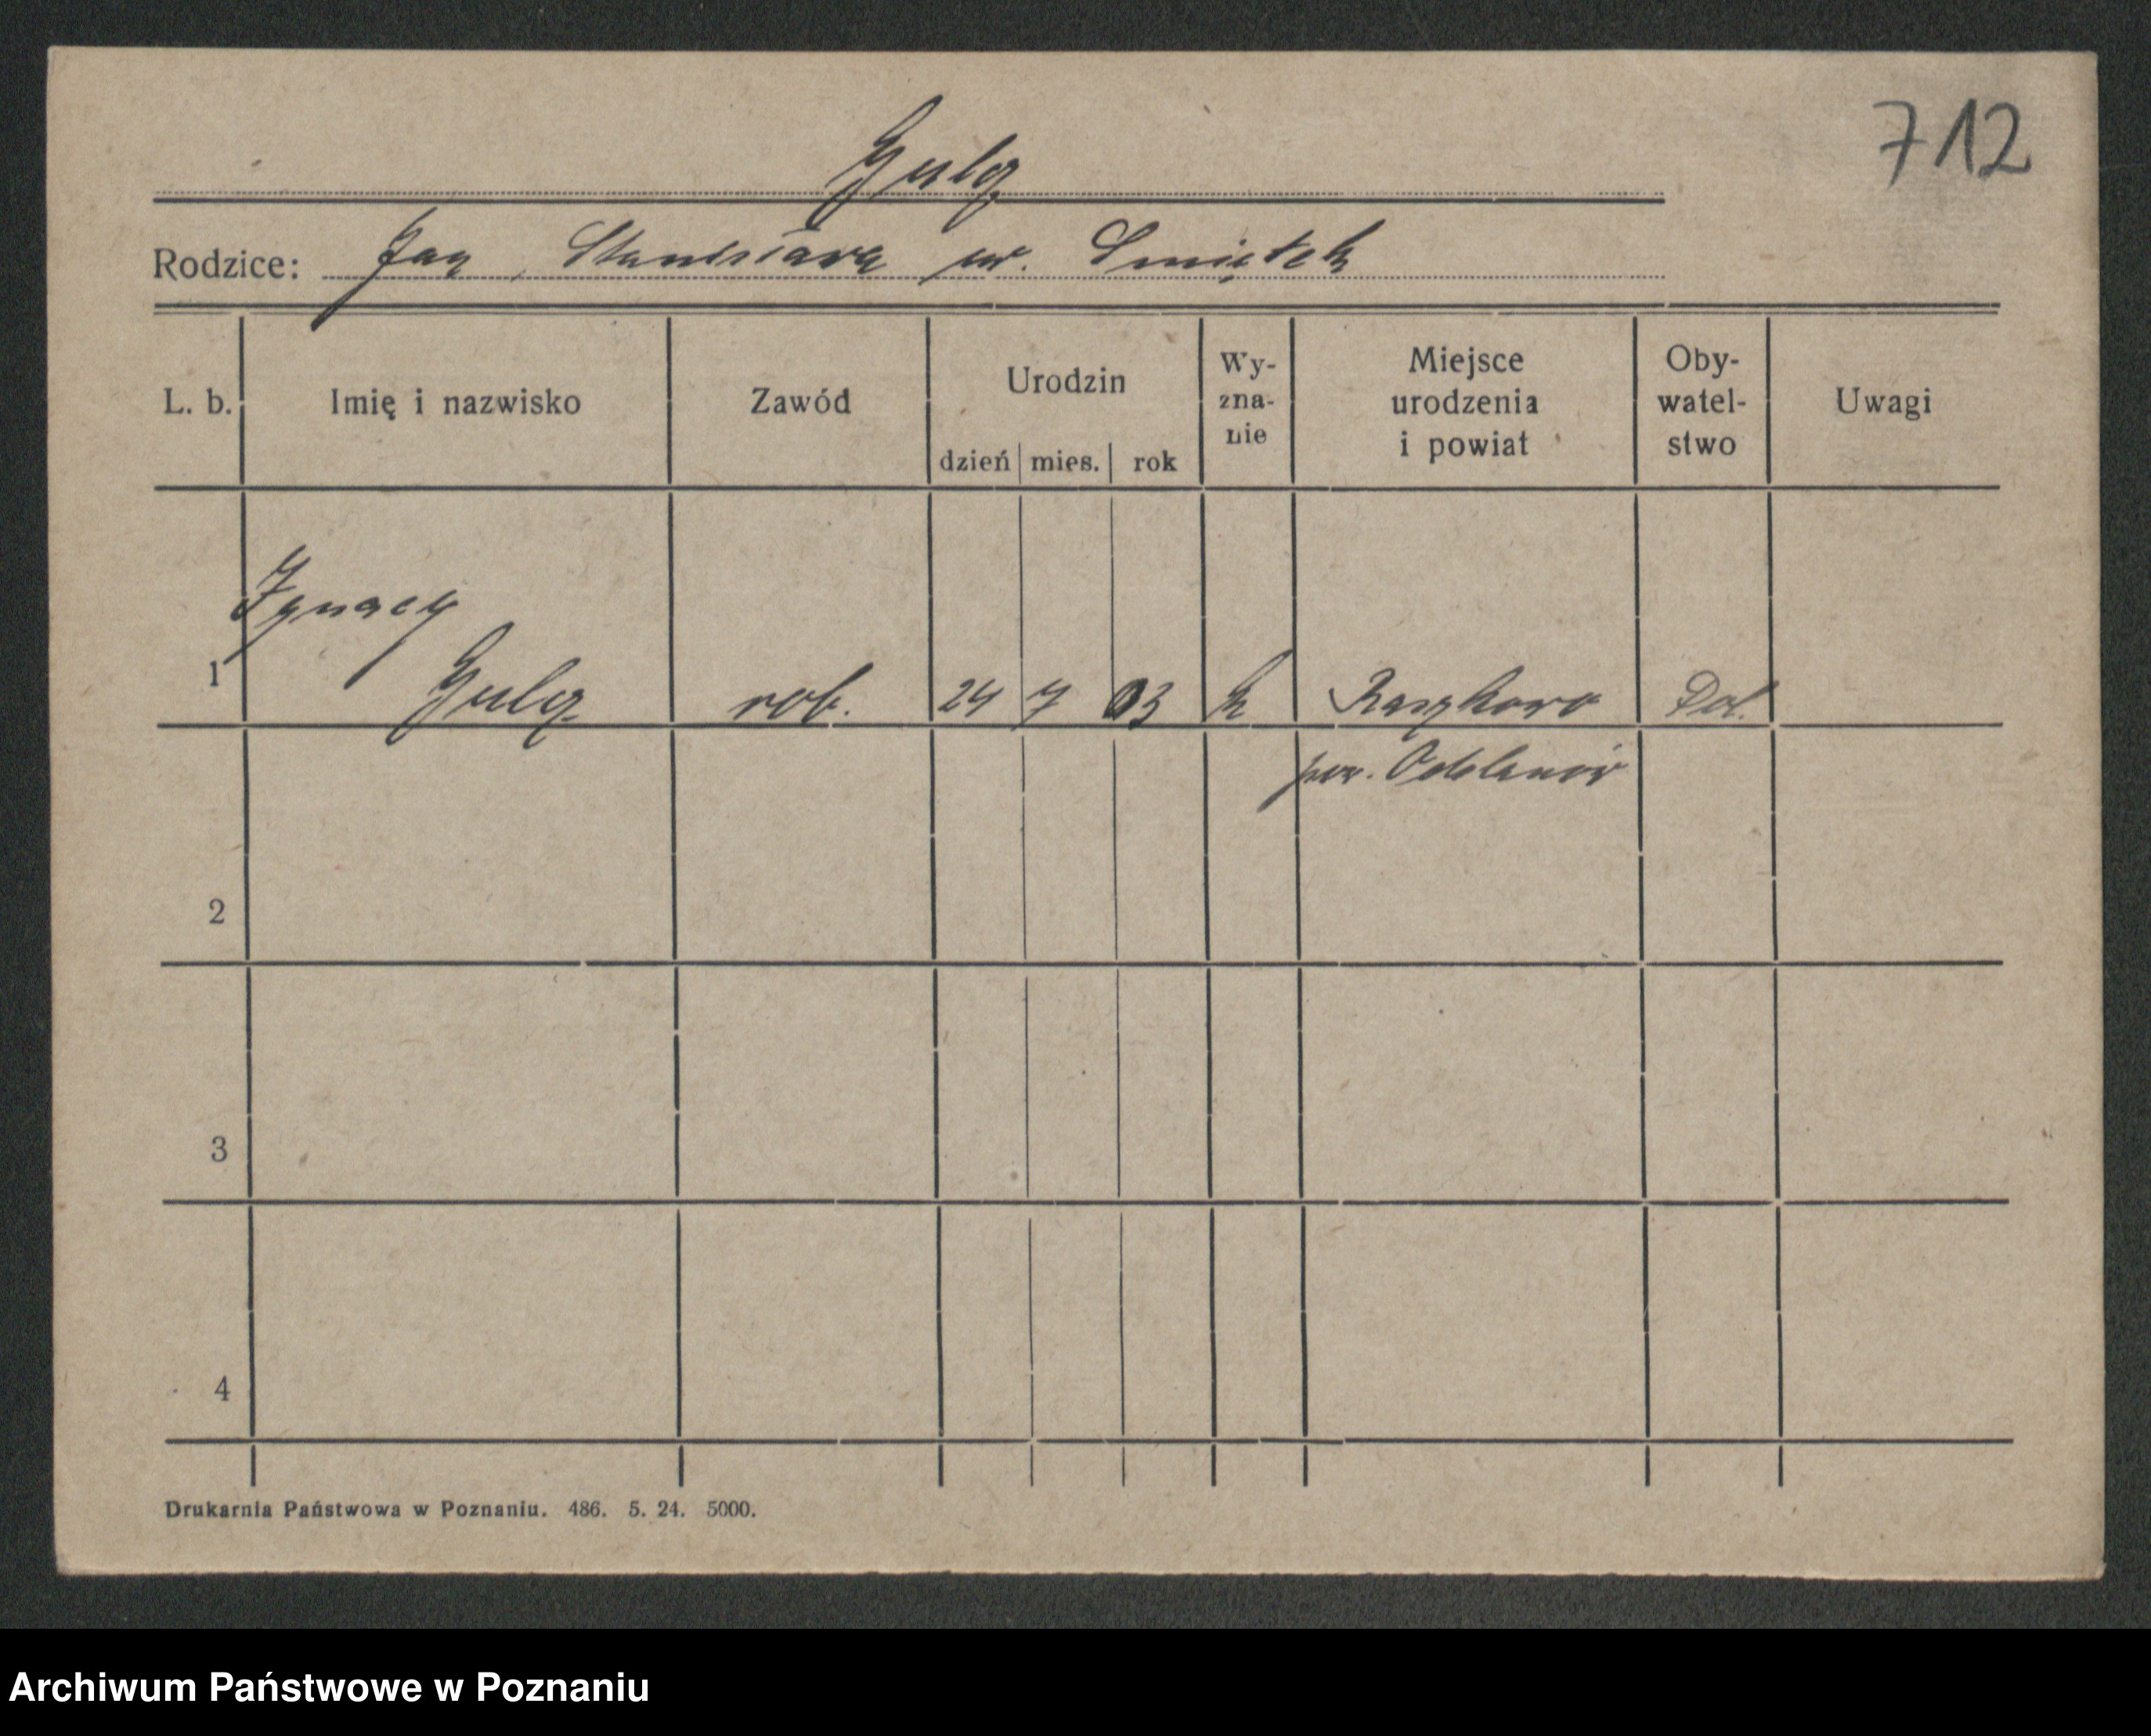 712
Gulcz
Rodzice: Jan, Stanisława ur. Smiętek
L. b. Imię i nazwisko Zawód Urodzin dzień mies. rok Wy-zna-nie Miejsce urodzenia i powiat Oby-watel-stwo Uwagi
Ignacy
1 Gulcz rob. 24 7 03 k Raszkowo Pol.
pow. Odolanów
2
3
4
Drukarnia Państwowa w Poznaniu. 486. 5. 24. 5000.
Archiwum Państwowe w Poznaniu